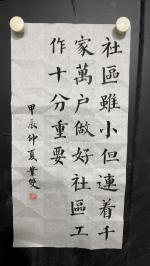 社區雖小但連着千
家萬户做好社區工
作十分重要
甲辰仲夏 叶雙